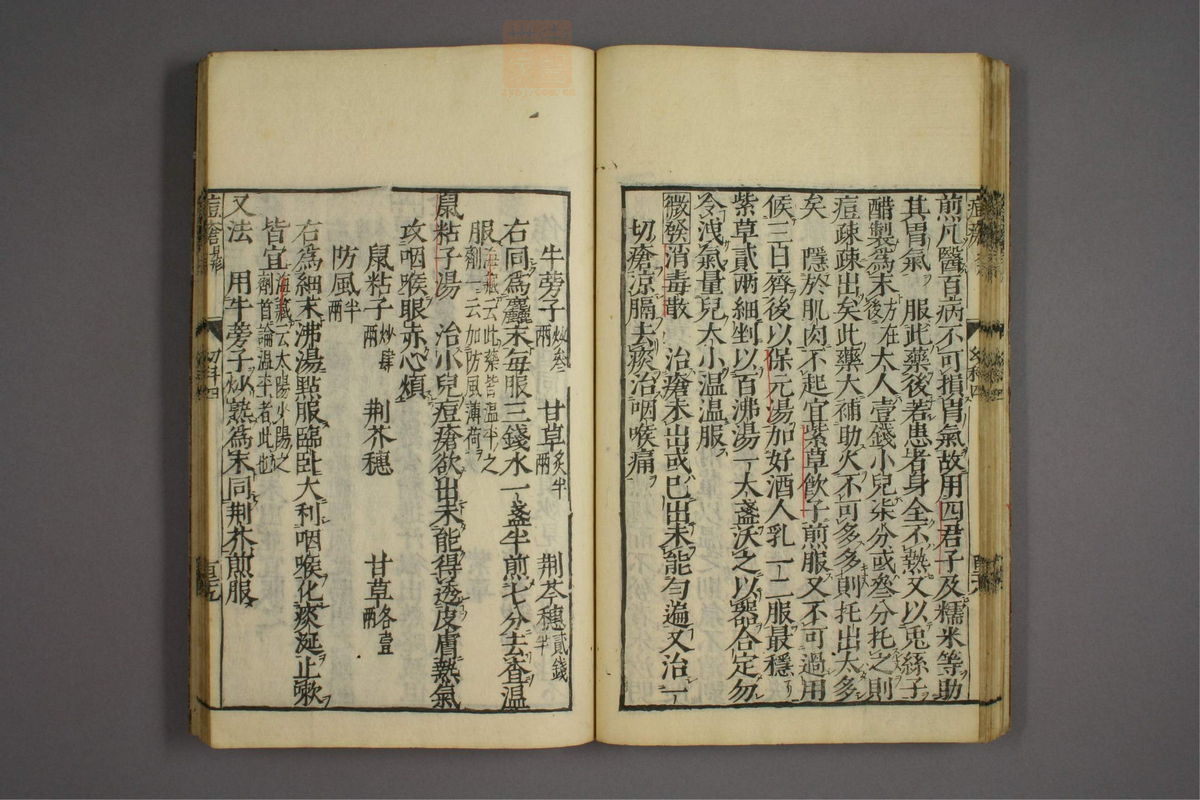 煎凡醫百病不可損胃氣故用四君子及糯米等助
其胃氣　服此藥後若患者身全不熱又以兎絲子
醋製為末後方在大人壹錢小兒柒分或叁分托之則
痘疎疎出矣此藥大補助火不可多多則托出太多
矣　隱於肌肉不起宜紫草飲子煎服又不可過用
候三日齊後以保元湯加好酒人乳一二服最穩
紫草貳兩細剉以百沸湯一大盞沃之以器合定勿
令洩氣量兒大小温温服
微發消毒散　治瘡未出或已出未能勻遍又治一
切瘡凉膈去痰治咽喉痛
牛蒡子炒叁兩　甘草炙半兩　荆芥穗貳錢半
右同為麤末每服三錢水一盞半煎七分去査温
服海藏云此藥皆温平之劑一云加防風薄荷
鼠粘子湯　治小兒痘瘡欲出未能得透皮膚熱氣
攻咽喉眼赤心煩
鼠粘子炒肆兩　荆芥穗　甘草各壹兩
防風半兩
右為細末沸湯點服臨臥大利咽喉化痰涎止嗽
皆宜海藏云太陽少陽之劑首論温平者此也
又法　用牛蒡子炒熟為末同荆芥煎服
幼科四